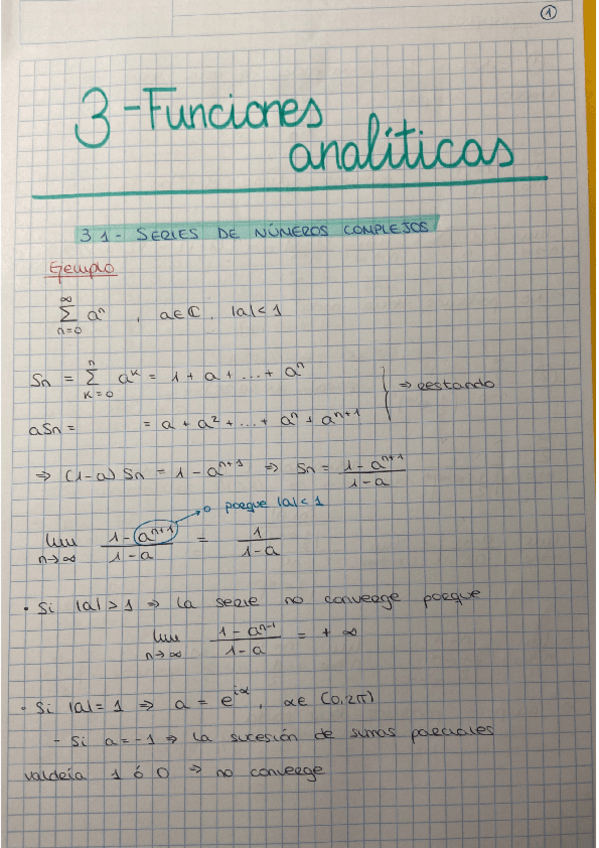 1
3-Funciones
analíticas
3.1- SERIES DE NÚMEROS COMPLEJOS
Ejemplo
∞
Σ aⁿ , a∈ℂ, |a|<1
n=0
Sn = Σ_{k=0}^{n} aᵏ = 1 + a + ... + aⁿ
⇒ restando
aSn = = a + a² + ... + aⁿ + aⁿ⁺¹
⇒ (1-a) Sn = 1 - aⁿ⁺¹ ⇒ Sn = (1 - aⁿ⁺¹)/(1-a)
0 porque |a|<1
lim_{n→∞} (1 - aⁿ⁺¹)/(1-a) = 1/(1-a)
· Si |a|>1 ⇒ la serie no converge porque
lim_{n→∞} (1 - aⁿ⁻¹)/(1-a) = + ∞
· Si |a|=1 ⇒ a = e^{iα}, α∈ (0,2π)
- Si a=-1 ⇒ la sucesión de sumas parciales
valdría 1 ó 0 ⇒ no converge